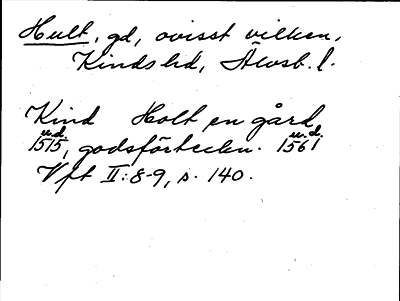 Hult, gd, ovisst vilken,
Kinds hd, Älvsb. l.
Kind Holt en gård
u.d. u.d.
1515, godsförteckn. 1561
Vft II:8-9, s. 140.